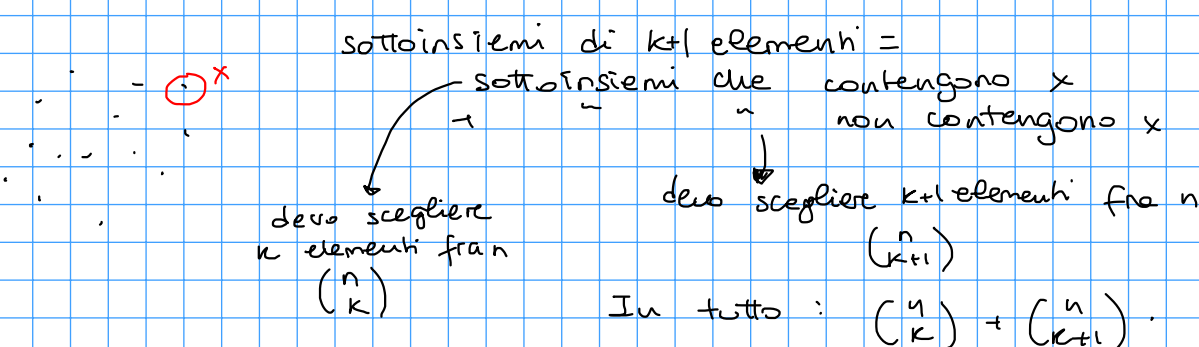 sottoinsiemi di k+1 elementi =
x
sottoinsiemi che contengono x
+ ~ ~ non contengono x
devo scegliere
k elementi fra n
(n k)
devo scegliere k+1 elementi fra n
(n k+1)
In tutto : (n k) + (n k+1) .